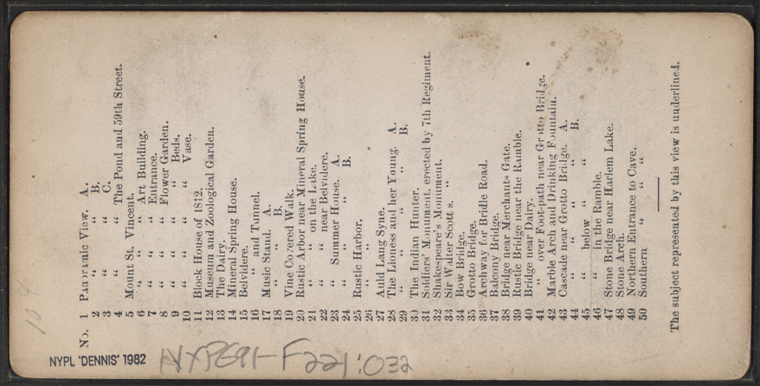 No. 1 Panoramic View. A.
2 " " B.
3 " " C.
4 " " The Pond and 59th Street.
5 Mount St. Vincent.
6 " " Art Building.
7 " " Entrance.
8 " " Flower Garden.
9 " " " Beds.
10 " " " Vase.
11 Block House of 1812.
12 Museum and Zoological Garden.
13 The Dairy.
14 Mineral Spring House.
15 Belvidere.
16 " and Tunnel.
17 Music Stand. A.
18 " " B.
19 Vine Covered Walk.
20 Rustic Arbor near Mineral Spring House.
21 " " on the Lake.
22 " " near Belvidere.
23 " Summer House. A.
24 " " " B.
25 Rustic Harbor.
26 " "
27 Auld Lang Syne.
28 The Lioness and her Young. A.
29 " " " " " B.
30 The Indian Hunter.
31 Soldiers' Monument. erected by 7th Regiment.
32 Shakespeare's Monument.
33 Sir Walter Scott's. "
34 Bow Bridge.
35 Grotto Bridge.
36 Archway for Bridle Road.
37 Balcony Bridge.
38 Bridge near Merchants Gate.
39 Rustic Bridge near the Ramble.
40 Bridge near Dairy.
41 " over Foot-path near Grotto Bridge.
42 Marble Arch and Drinking Fountain.
43 Cascade near Grotto Bridge. A.
44 " " " " B.
45 " below " "
46 " in the Ramble.
47 Stone Bridge near Harlem Lake.
48 Stone Arch.
49 Northern Entrance to Cave.
50 Southern " "
The subject represented by this view is underlined.
NYPL 'DENNIS' 1982
NYPG91-F221:032